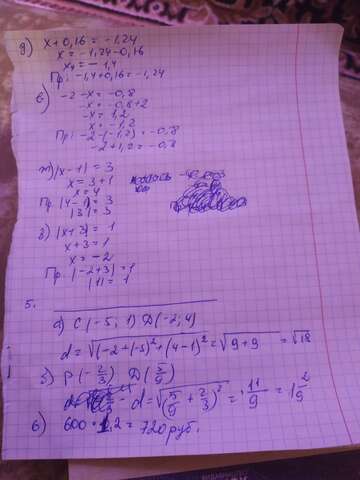 д) x + 0,16 = -1,24
x = -1,24 - 0,16
x = -1,4
Пр: -1,4 + 0,16 = -1,24
е) -2 - x = -0,8
-x = -0,8 + 2
-x = 1,2
x = -1,2
Пр: -2 - (-1,2) = -0,8
-2 + 1,2 = -0,8
ж) |x - 1| = 3
x = 3 + 1
x = 4
Пр. |4 - 1| = 3
|3| = 3
з) |x + 3| = 1
x + 3 = 1
x = -2
Пр. |-2 + 3| = 1
|1| = 1
5.
а) C (-5; 1) D (-2; 4)
d = √(-2 + (-5)² + (4-1)² = √9 + 9 = √18
б) P (-2/3) D (5/9)
d = √(5/9 + 2/3)² = 11/9 = 1 2/9
6) 600 · 1,2 = 720 руб.